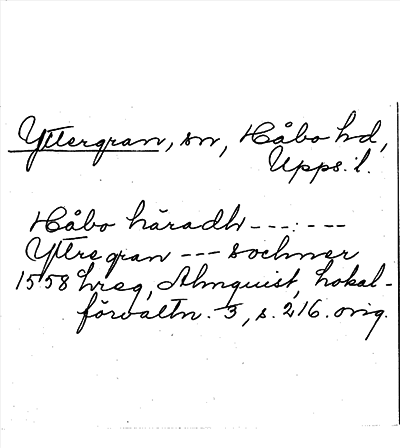 Yttergran, sn, Håbo hd,
Upps. l.
Håbo häradh ---:---
Yttre gran --- sochner
1558 hreg, Almquist, Lokal-
förvaltn. 3, s. 216. orig.